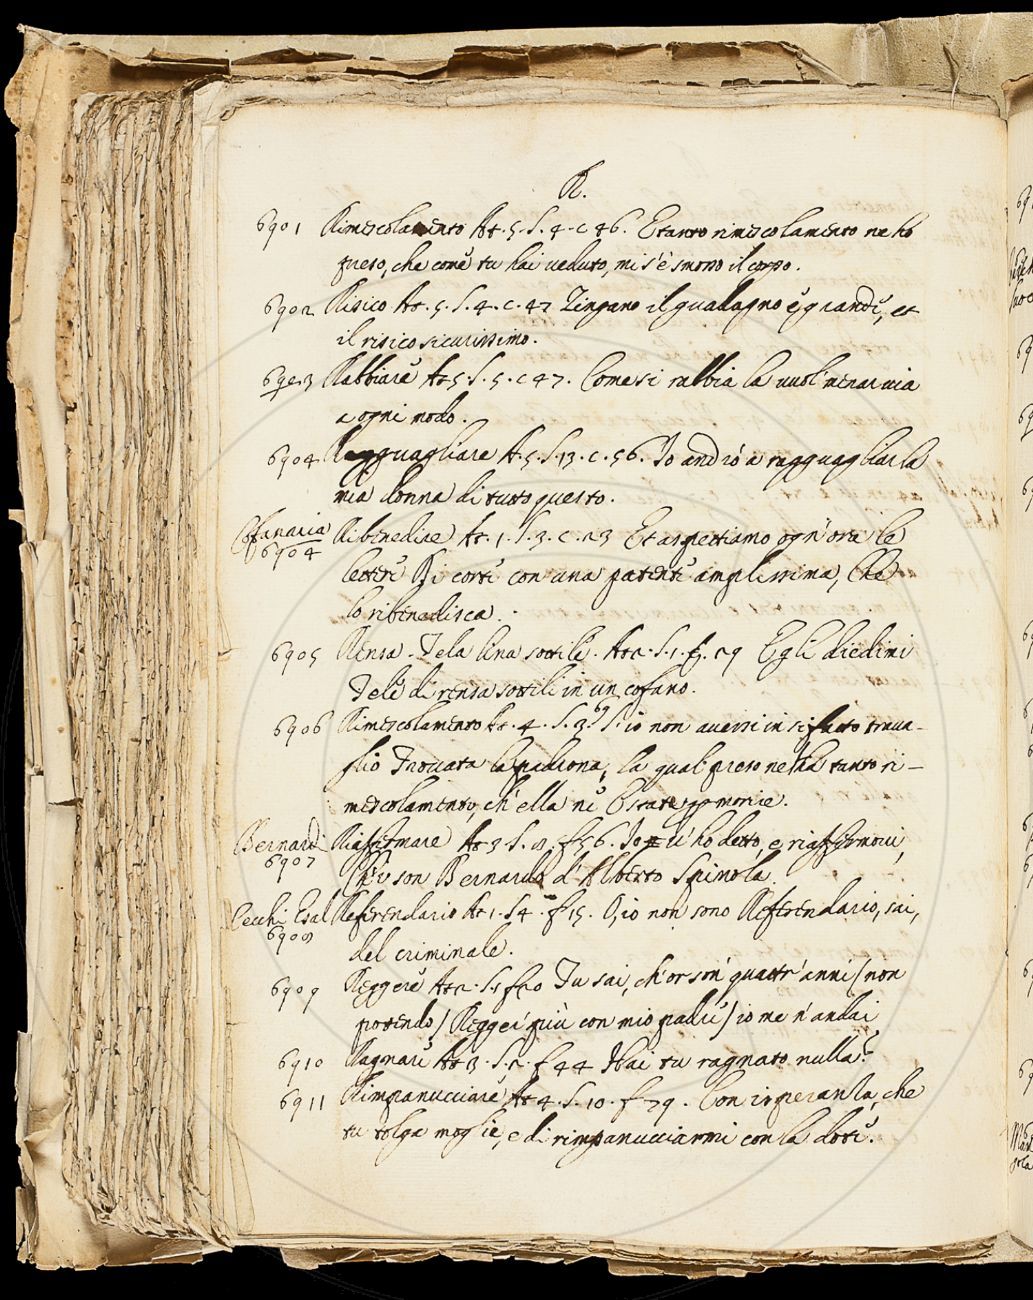 R.
6901 Rimescolamento At. 5. S. 4. c 46. E tanto rimescolamento ne ho
preso, che come tu hai veduto, mi s'è smosso il corpo.
6902 Risico At. 5. S. 4. c. 47 Zingano il guadagno è grande, et
il risico sicurissimo.
6903 Rabbiare At 5 S. 5. c 47. Come si rabbia la vuol menar via
a ogni modo.
6904 Ragguagliare At. 5. S. 13. c. 56. Io andrò a ragguagliar la
mia donna di tutto questo.
Cofanaria Ribenedire At. 1. S. 3. c. 23 Et aspettiamo ogn'ora le
6904
lettere di corte con una patente amplissima, che
lo ribenedisca.
6905 Rensa. Tela lina sottile. At 2. S. 1. f. 29 Egli diedimi
Tele di rensa sottili in un cofano.
6906 Rimescolamento At. 4. S. 3 69 S. io non avessi in sì fatto trava-
glio Trovata la padrona, la qual preso ne ha tanto ri-
mescolamento, ch'ella ne è stata per morire.
Bernardi Riaffermare At 3 S. 8. f 56. Io ve ho detto, e riaffermovi,
6907
Ch'io son Bernardo d'Alberto Spinola.
Cecchi Esal Referendario At 1. S 4. f 15. O, io non sono Referendario, sai,
6908
del criminale.
6909 Reggere At 2. S. 5 f 20 Tu sai, ch'or son' quattr'anni / non
potendo / Regger più con mio padre / io me n'andai
6910 Ragnare At 3. S. 2. f 44 Hai tu ragnato nulla?
6911 Rimpannucciare At 4. S. 10. f 79. Con isperanza, che
tu tolga moglie, e di rimpannucciarmi con la dote.